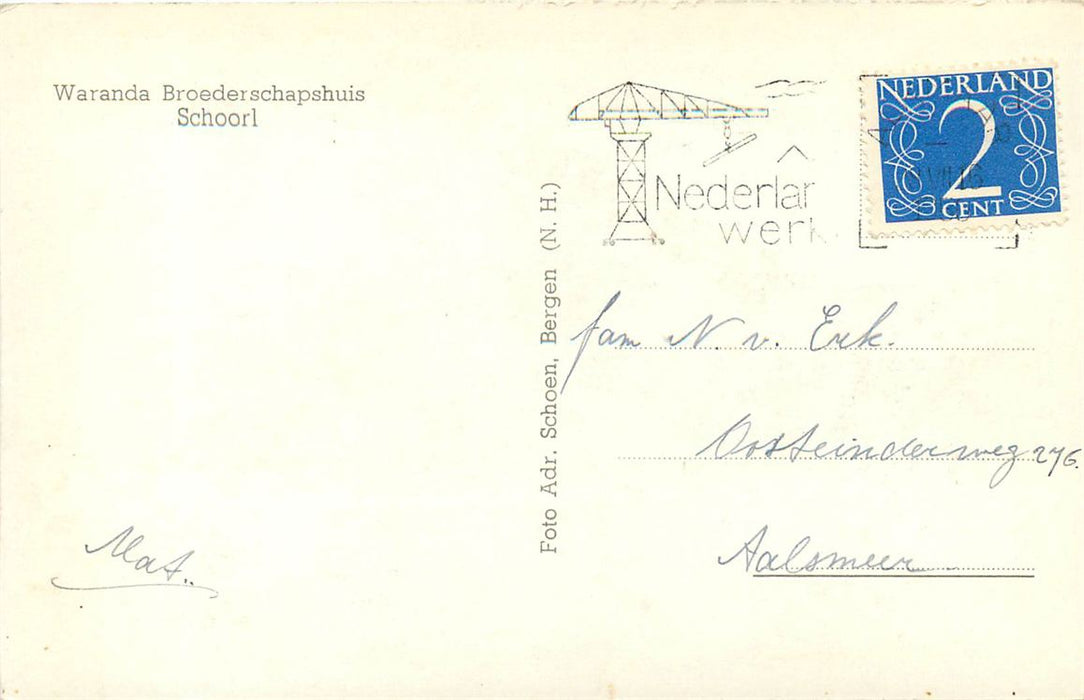 Waranda Broederschapshuis
Schoorl
Mat.
Foto Adr. Schoen, Bergen (N. H.)
Nederlan
werk
NEDERLAND
2
CENT
fam N. v. Erk.
Oosteinderweg 276.
Aalsmeer